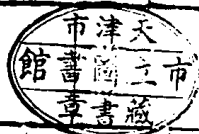 天津市
市立圖書館
藏書章